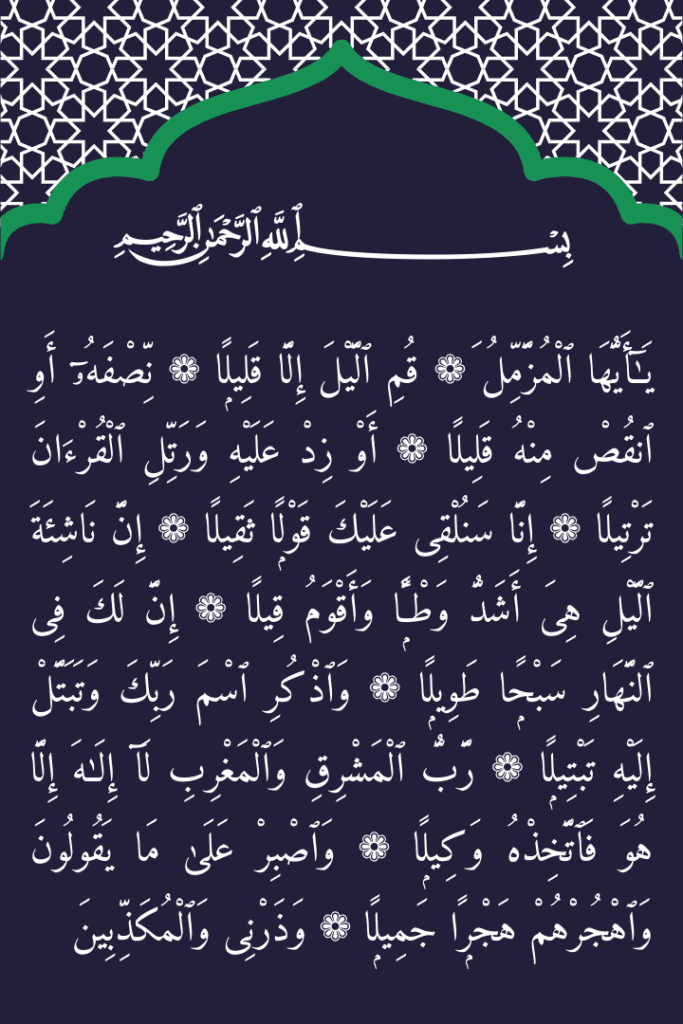 بِسْمِ ٱللَّهِ ٱلرَّحْمَٰنِ ٱلرَّحِيمِ
يَٰٓأَيُّهَا ٱلْمُزَّمِّلُ َ ۞ قُمِ ٱلَّيْلَ إِلَّا قَلِيلًۭا ۞ نِّصْفَهُۥٓ أَوِ
ٱنقُصْ مِنْهُ قَلِيلًا ۞ أَوْ زِدْ عَلَيْهِ وَرَتِّلِ ٱلْقُرْءَانَ
تَرْتِيلًا ۞ إِنَّا سَنُلْقِى عَلَيْكَ قَوْلًۭا ثَقِيلًا ۞ إِنَّ نَاشِئَةَ
ٱلَّيْلِ هِىَ أَشَدُّ وَطْـًۭٔا وَأَقْوَمُ قِيلًا ۞ إِنَّ لَكَ فِى
ٱلنَّهَارِ سَبْحًۭا طَوِيلًۭا ۞ وَٱذْكُرِ ٱسْمَ رَبِّكَ وَتَبَتَّلْ
إِلَيْهِ تَبْتِيلًۭا ۞ رَّبُّ ٱلْمَشْرِقِ وَٱلْمَغْرِبِ لَآ إِلَـٰهَ إِلَّا
هُوَ فَٱتَّخِذْهُ وَكِيلًۭا ۞ وَٱصْبِرْ عَلَىٰ مَا يَقُولُونَ
وَٱهْجُرْهُمْ هَجْرًۭا جَمِيلًۭا ۞ وَذَرْنِى وَٱلْمُكَذِّبِينَ